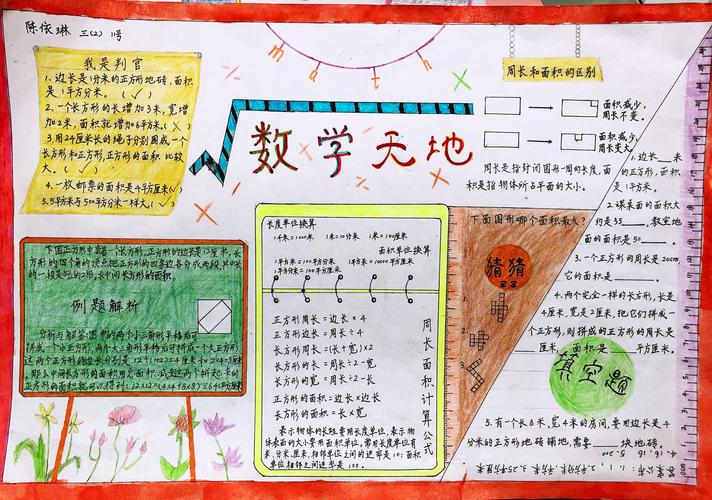 陈依琳 三(2) 1号
math
数学天地
我是判官
1.边长是1分米的正方形地砖,面积
是1平方分米。(✓)
2.一个长方形的长增加3米,宽增
加2米,面积就增加6平方米。(✗)
3.用24厘米长的绳子分别围成一个
长方形和正方形,正方形的面积比较
大。(✓)
4.一枚邮票的面积是4平方厘米(✓)
5.5平方米与500平方分米一样大。(✓)
周长和面积的区别
面积减少,
周长不变。
面积减少,
周长变大。
周长是指封闭图形一周的长度,面
积是指物体所占平面的大小。
例题解析
长度单位换算
1千米=1000米 1米=10分米 1米=100厘米
面积单位换算
1平方米=100平方分米 1平方米=10000平方厘米
1平方分米=100平方厘米
正方形周长=边长×4
正方形边长=周长÷4
长方形周长=(长+宽)×2
长方形的长=周长÷2-宽
长方形的宽=周长÷2-长
正方形的面积=边长×边长
长方形的面积=长×宽
周长面积计算公式
表示物体的长短要用长度单位,表示物
体表面的大小要用面积单位。常用长度单位有
米,分米,厘米,相邻单位之间的进率是10;面积
单位相邻之间进率是100。
下面图形哪个面积最大?
猜猜
1.
2.
3.
填空题
1.边长__米
的正方形,面积
是1平方米。
2.课桌面的面积大
约是35__,教室地
面的面积是50__。
3.一个正方形的周长是20cm
它的面积是__。
4.两个完全一样的长方形,长是
4厘米,宽是2厘米,把它们拼成一
个正方形,则拼成的正方形的周长是
__厘米,面积是__平方厘米。
5.有一个长8米,宽4米的房间,要用边长是4
分米的正方形地砖铺地,需要__块地砖。